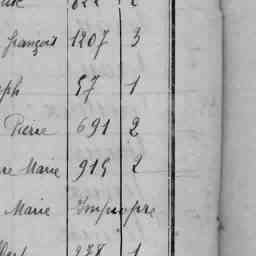 françois 1207 3
57 1
Pierre 691 2
Marie 915 2
Marie Impropre
1